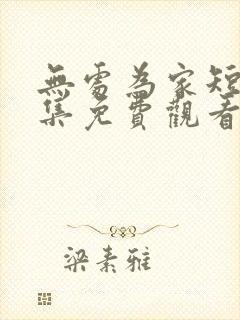 無處為家短
集免費觀看
梁素雅